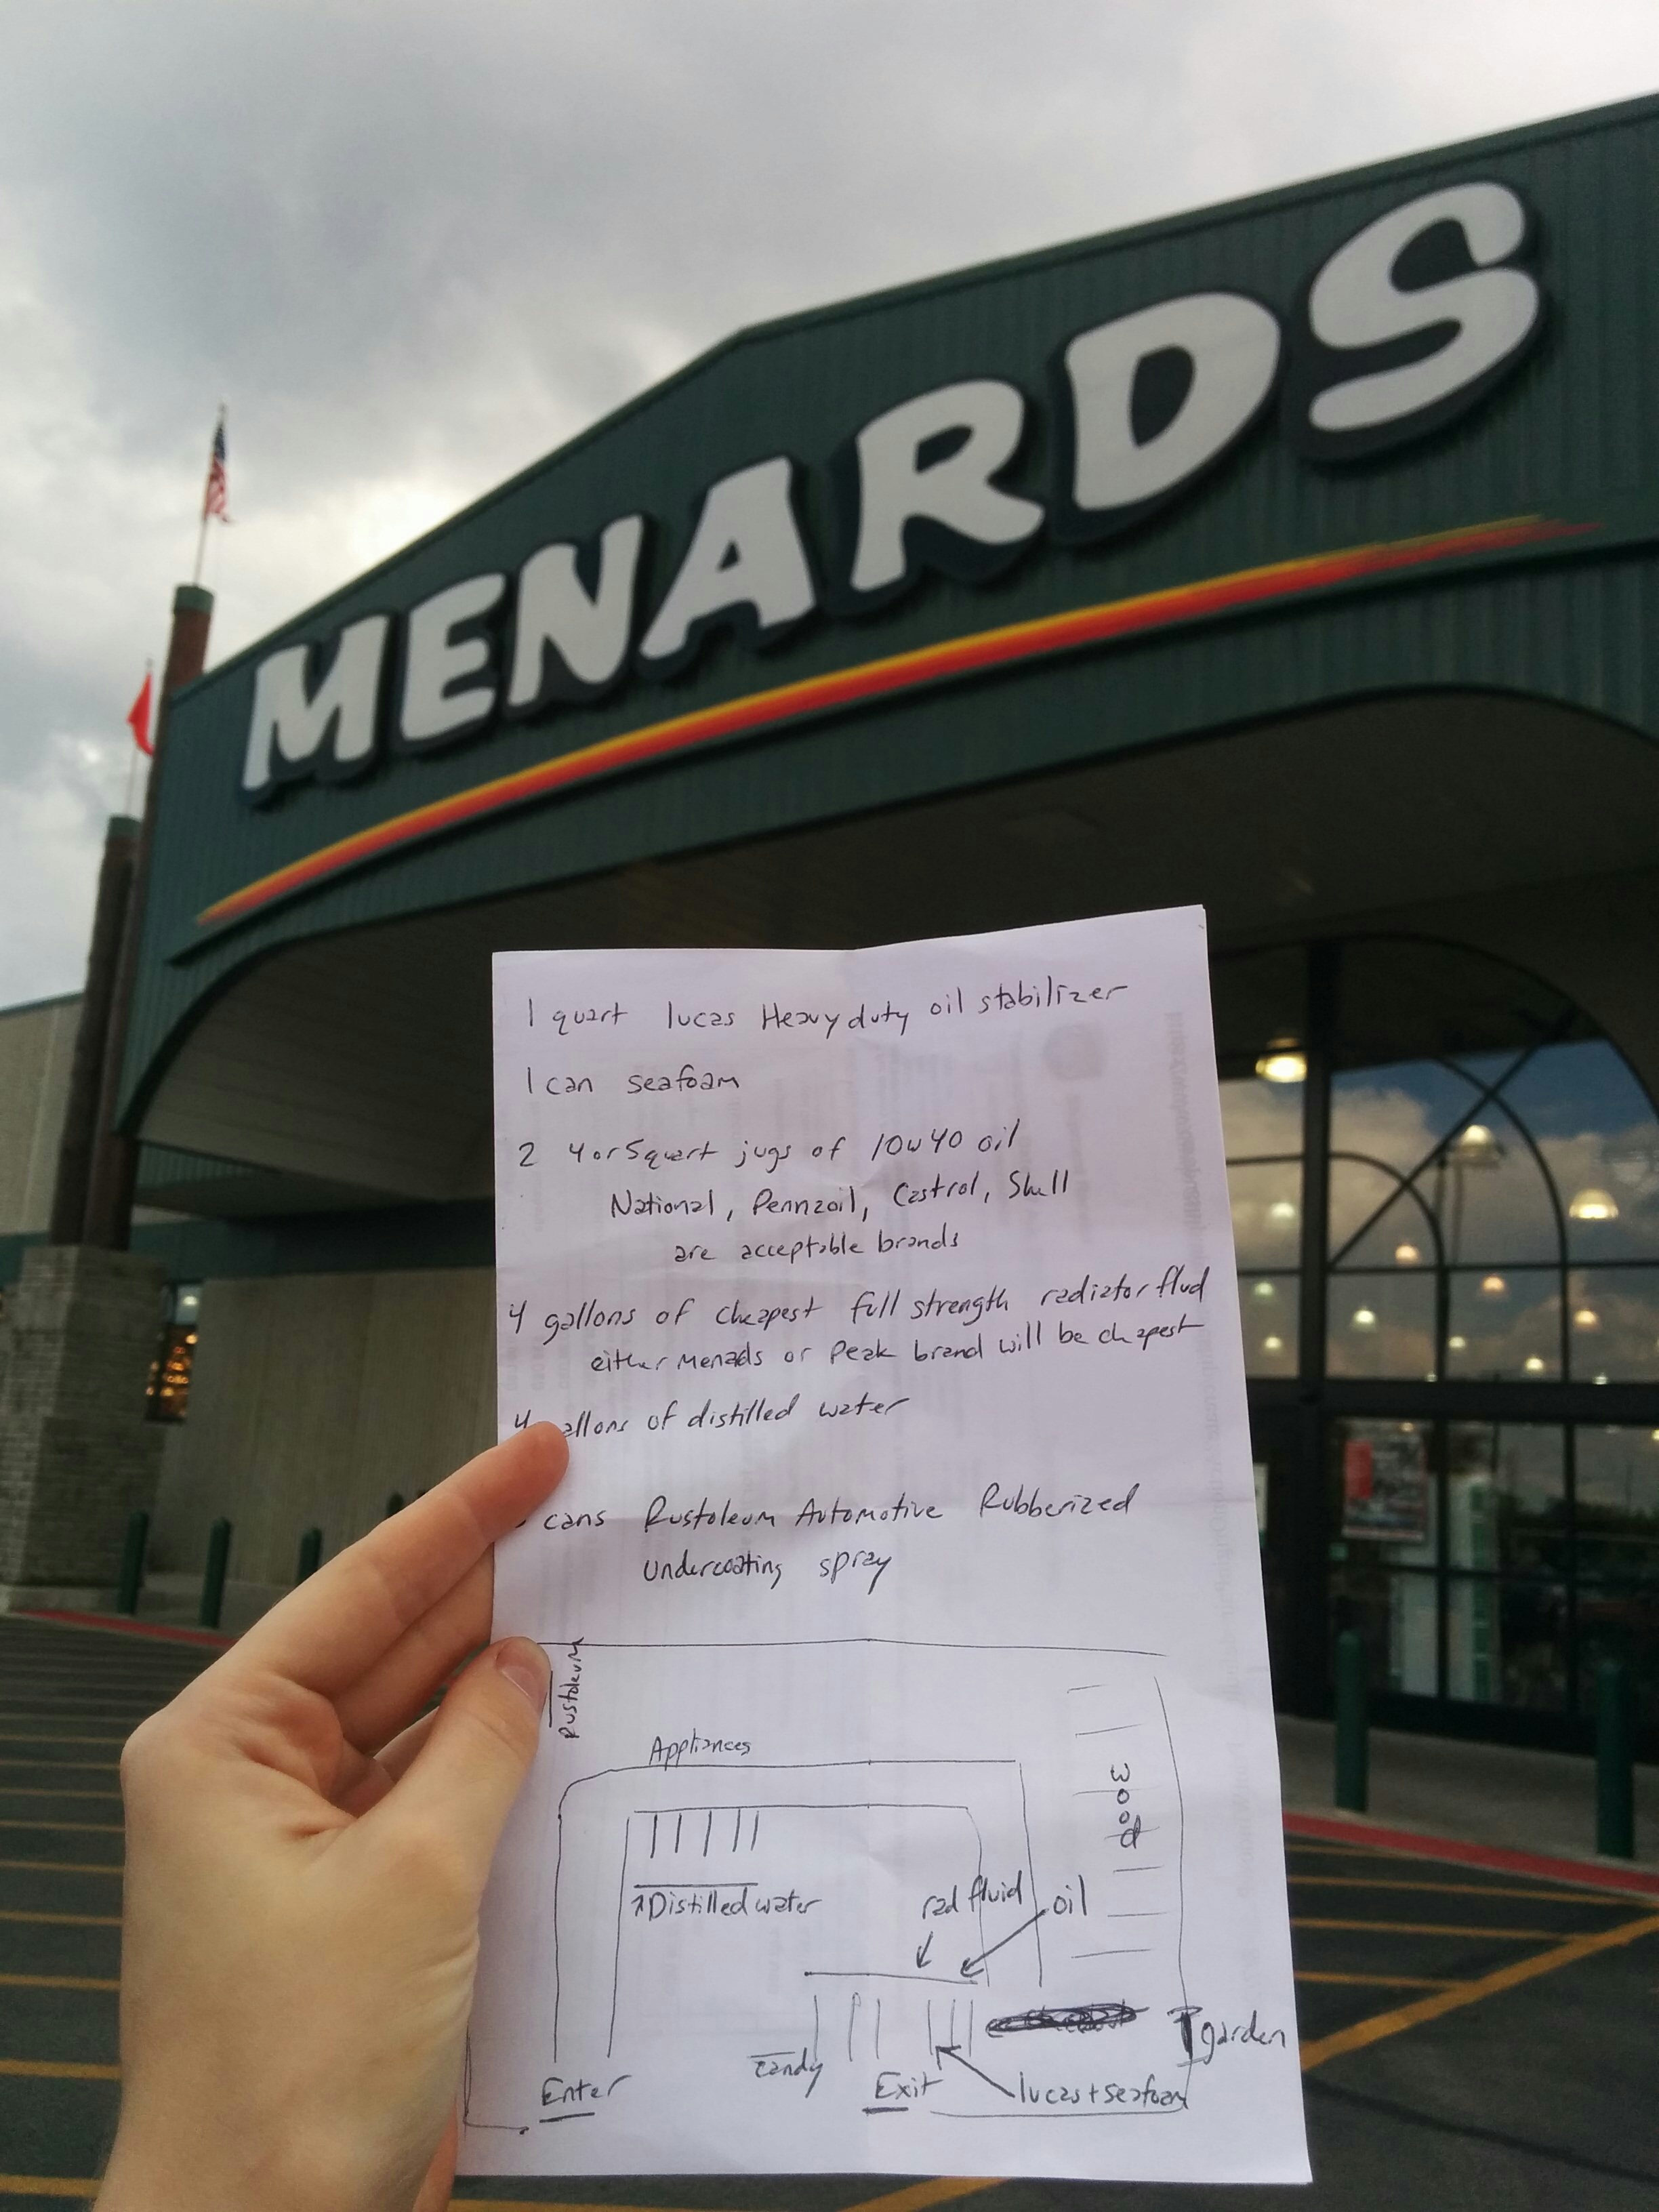 MENARDS
1 quart lucas Heavy duty oil stabilizer
1 can seafoam
2 4 or 5 quart jugs of 10w40 oil
National, Pennzoil, Castrol, Shell
are acceptable brands
4 gallons of cheapest full strength radiator flud
either Menads or Peak brand will be cheapest
4 allons of distilled water
cans Rustoleum Automotive Rubberized
undercoating spray
Rustoleum
Appliances
Wood
Distilled water
rad fluid
oil
garden
candy
Enter
Exit
lucas + seafoam